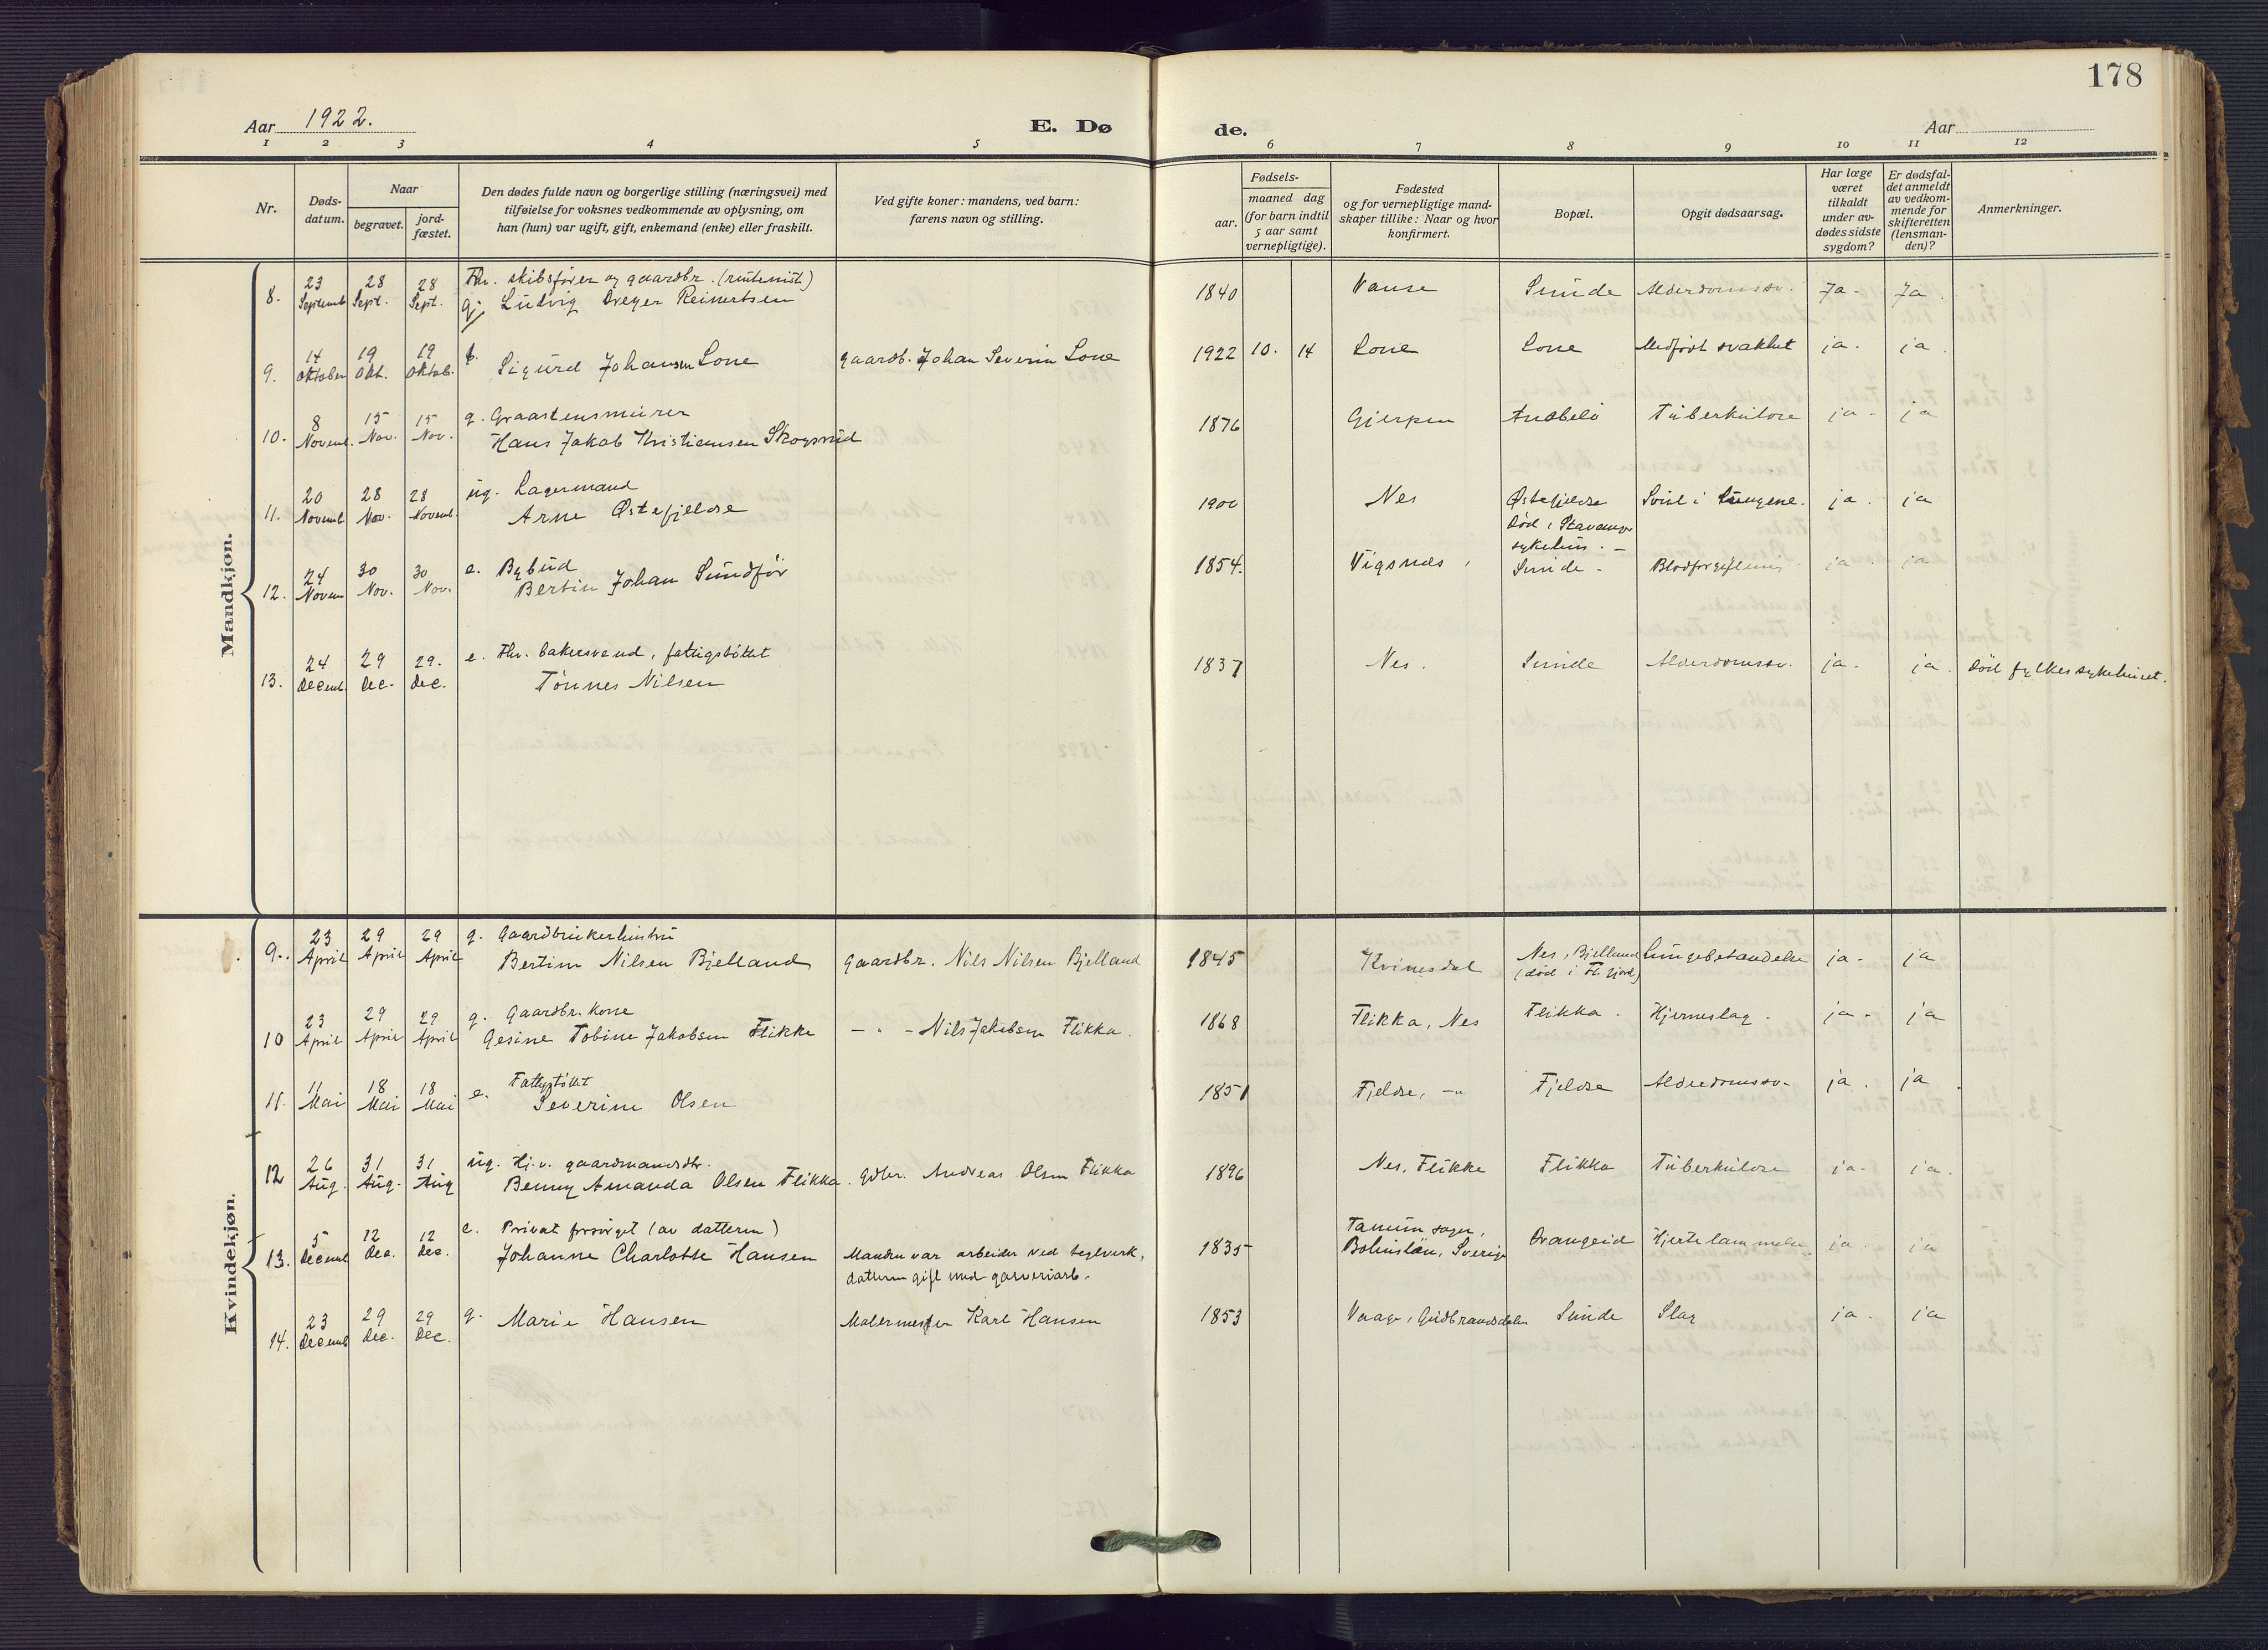 178
Aar 1922.
E. Dø
de.
Aar
1 2 3 4 5 6 7 8 9 10 11 12
Nr.
Døds-
datum.
Naar
begravet.
jord-
fæstet.
Den dødes fulde navn og borgerlige stilling (næringsvei) med
tilføielse for voksnes vedkommende av oplysning, om
han (hun) var ugift, gift, enkemand (enke) eller fraskilt.
Ved gifte koner: mandens, ved barn:
farens navn og stilling.
Fødsels-
aar.
maaned dag
(for barn indtil
5 aar samt
vernepligtige).
Fødested
og for vernepligtige mand-
skaper tillike: Naar og hvor
konfirmert.
Bopæl.
Opgit dødsaarsag.
Har læge
været
tilkaldt
under av-
dødes sidste
sygdom?
Er dødsfal-
det anmeldt
av vedkom-
mende for
skifteretten
(lensman-
den)?
Anmerkninger.
Mandkjøn.
23 28 28 Fhv. skibsfører og gaardbr. (rutemist)
8. Septemb Sept. Sept. g. Ludvig Dreyer Reinertsen 1840 Vanse Sunde Alderdomssv. Ja - Ja.
14 19 19 b.
9. Oktober Okt. Oktob. Sigurd Johansen Lone gaardb. Johan Severin Lone 1922 10. 14 Lone Lone Medfødt svakhet ja. ja.
8 15 15 g. Graastensmurer
10. Novemb. Nov. Nov. Hans Jakob Kristiansen Skogsrud 1876 Gjerpen Anabelø Tuberkulose ja - ja
20 28 28 ug. Lagermand
11. Novemb Nov. Novemb. Arne Østefjeldse 1900 Nes Østefjeldse Svul i Lungene. ja. ja
død i Stavanger
sykehus. -
24 30 30 e. Bybud
12. Novem Nov. Nov. Bertin Johan Sundfør 1854. Vigsnes, Sunde - Blodforgiftning ja. ja
24 29 29. e. Fhv. bakersvend, fattigstøttet
13. Decemb. Dec. Dec. Tønnes Nilsen 1837 Nes. Sunde Alderdomssv. ja. ja. Død fylkessykehuset.
Kvindekjøn.
23 29 29 g. Gaardbrukerhustru
9. April April April Bertine Nilsen Bjelland gaardbr. Nils Nilsen Bjelland 1845 Kvinesdal Nes, Bjelland Lungebetændelse ja - ja
(død i Fl. fjord)
23 29 29 g. Gaardbr. Kone
10 April April April Gesine Tobine Jakobsen Flikke - " - Nils Jakobsen Flikka. 1868 Flikka, Nes Flikka. Hjerneslag. ja - ja
11 18 18 e. Fattigstøttet
11. Mai Mai Mai Severine Olsen 1851 Fjeldse, -" Fjeldse Alderdomssv. ja. ja.
26 31 31 ug. Hj.v. gaardmandsdtr.
12 Aug. Aug. Aug Benny Amanda Olsen Flikka. Gdbr. Andreas Olsen Flikka 1896 Nes, Flikke Flikka Tuberkulose ja - ja.
5 12 12 e. Privat forsørget (av datteren)
13. Decemb Dec. Dec. Johanne Charlotte Hansen Manden var arbeider ved teglverk,
datteren gift med garveriarb.
1835 Tanum sogn,
Bohuslän, Sverige Drangeid Hjertelammelse ja. ja
23 29 29 g.
14. Decemb Dec. Dec. Marie Hansen Malermester Karl Hansen 1853 Vaage, Gudbrandsdalen Sunde Slag ja. ja